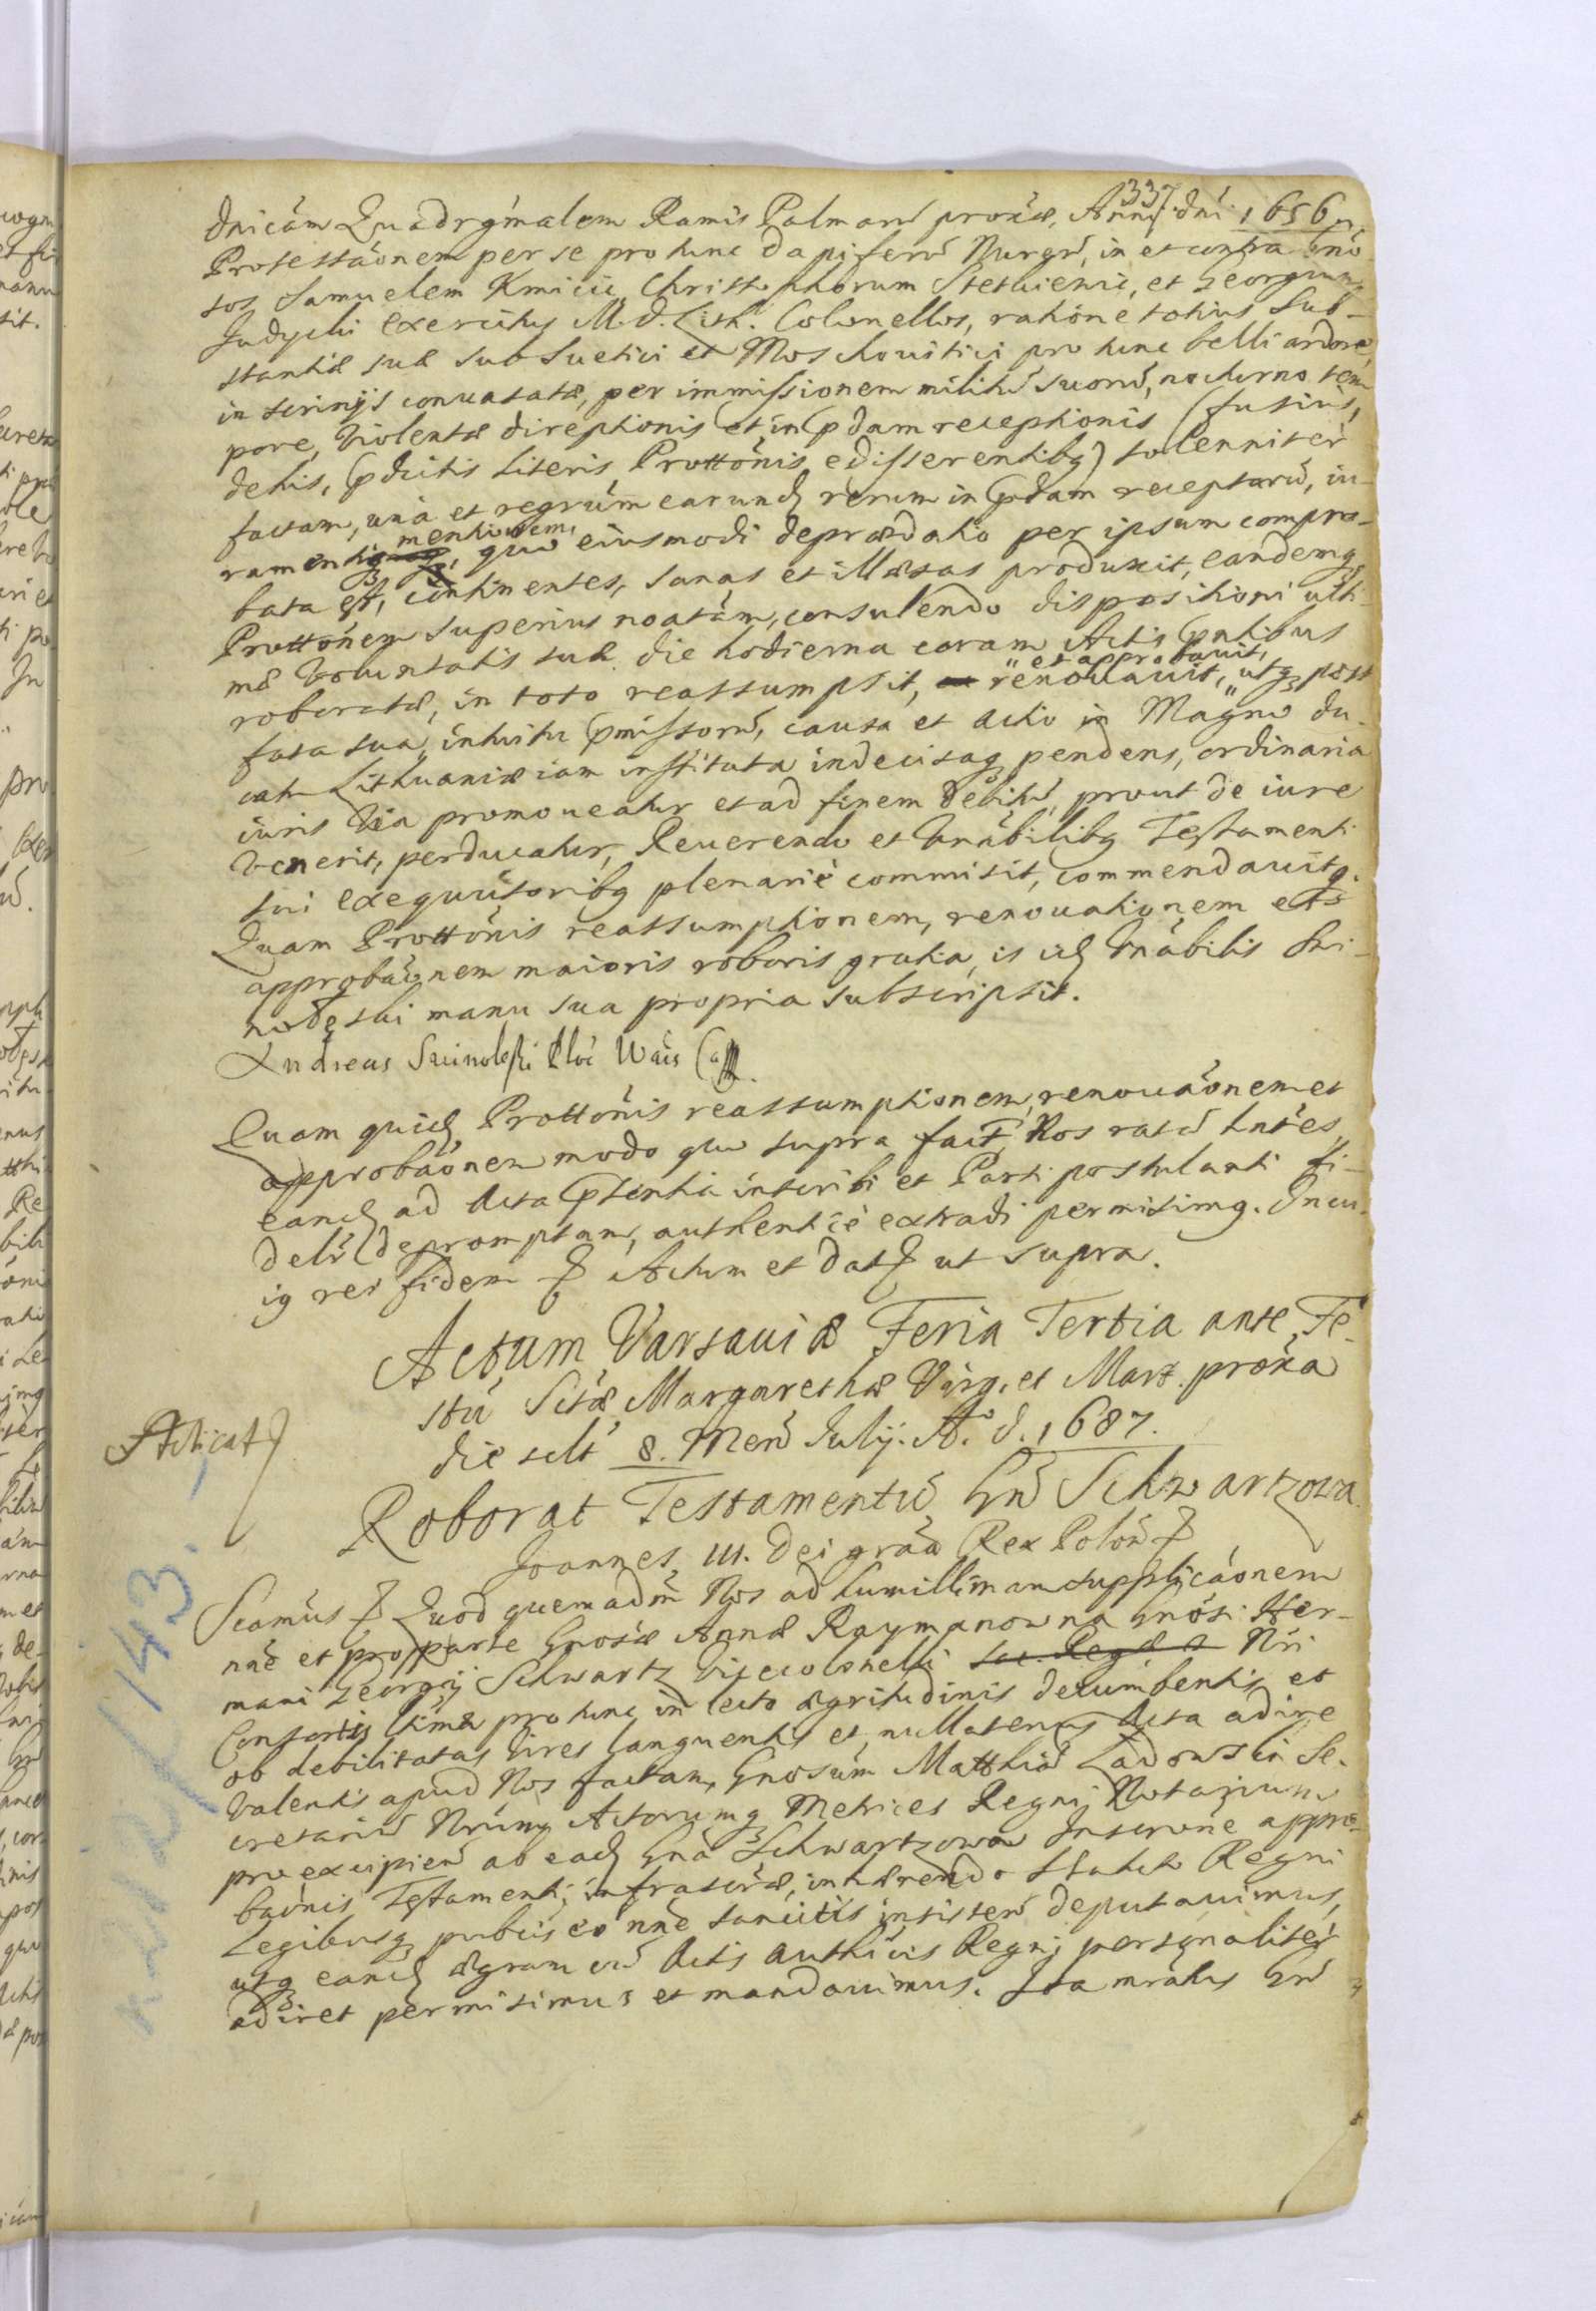 337
dnicam Quadrgmalem Ramis Palmarũ proxĩe, Anni dni 1656ti,
Protestãonem per se pro tunc dapiferũ Nurgr̃, in et contra Gnõ
sos Samuelem Kmicic, Christophorum Stetkiewic, et Georgium
Judycki exercitus M. D. Lith. Colonellos, ratiõne totius Sub-
stantiæ suæ sub Suetici et Moschouitici pro tunc belli ardore,
in scrinijs conuasatæ, per immissionem militũ suorũ, nocturno tem
pore, violentæ direptionis et in prædam receptionis (fusius,
de his, prædictis literis Prottõnis edisserentibus) solenniter
factam, una et regrum earund. rerum in prædam receptarũ, iu-
ramentiq mentionem, quo eiusmodi deprædatio per ipsum compro-
bata est, continentes, sanas et illæsas produxit, eandemq
Prottõnem superius noatam, consulendo dispositioni ulti-
mæ Voluntatis suæ die hodierna coram Actis pntibus
roboratæ, in toto reassumpsit, renouauit, et approbauit, utq post
fata sua, intuitu præmissorũ, causa et actio in Magno du-
catu Lithuaniæ iam instituta indecisaq pendens, ordinaria
iuris via promoueatur et ad finem debitũ, prout de iure
venerit, perducatur, Reuerendo et Gnabilibq Testamenti
sui exequutoribq plenarie commisit, commendauitq.
Quam Prottõnis reassumptionem, renouationem et
approbãonem maioris roboris gratia, is id. Gnabilis Swi-
nolęski manu sua propria subscripsit.
Andreas Swinoleski
Quam quid. Prottõnis reassumptionem, renouãonem et
approbãonem modo quo supra fact. Nos ratũ hntes,
eand. ad Acta Præsentia inscribi et Parti postulanti fi-
delr̃ depromptam, authentice extradi permisimq. In cu-
iq rei fidem Actum et dat ut supra.
Actum Varsauiæ Feria Tertia ante Fe-
stũ Sctæ Margarethæ Virg. et Mart. proxĩa
die sclt 8. Menũ Julij. A.o d. 1687.
Roborat Testamentũ Gnũ Schwartzowa
Joannes III. Dei grãa Rex Polon
Scamus Quod quemadm Nos ad humillimam supplicãonem
nne et pro parte Gnosæ Annæ Raymanowna Gnosi Her-
mani Georgij Schwartz Vicecolonelli Sac. Regiæ Nri
Consortis ltimæ pro tunc in lecto ægritudinis decumbentis et
ob debilitatas vires languentis et nullatenus Acta adire
valentis apud Nos factam, Gnosum Matthiã Ladowski Se-
cretariũ Nrum Actorumq Metrices Regni Notarium
pro excipienũ ab ead. Gna Schwartzowa approbãonis Testamenti, infrascr̃æ, inhærendo Statuto Regni
Legibusq publicis eo nne sancitis deputauimus,
utq eand. ægram cũ Actis authcis Regni personaliter
adiret permisimus et mandauimus. Ita mratus Gnũ